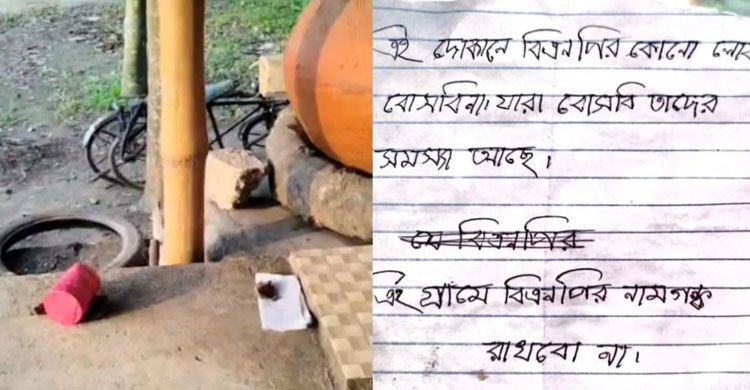 এই দোকানে বিএনপির কোনো লোক
বোসবিনা। যারা বোসবি তাদের
সমস্যা আছে।
যে বিএনপির
এই গ্রামে বিএনপির নামগন্ধ
রাখবো না।